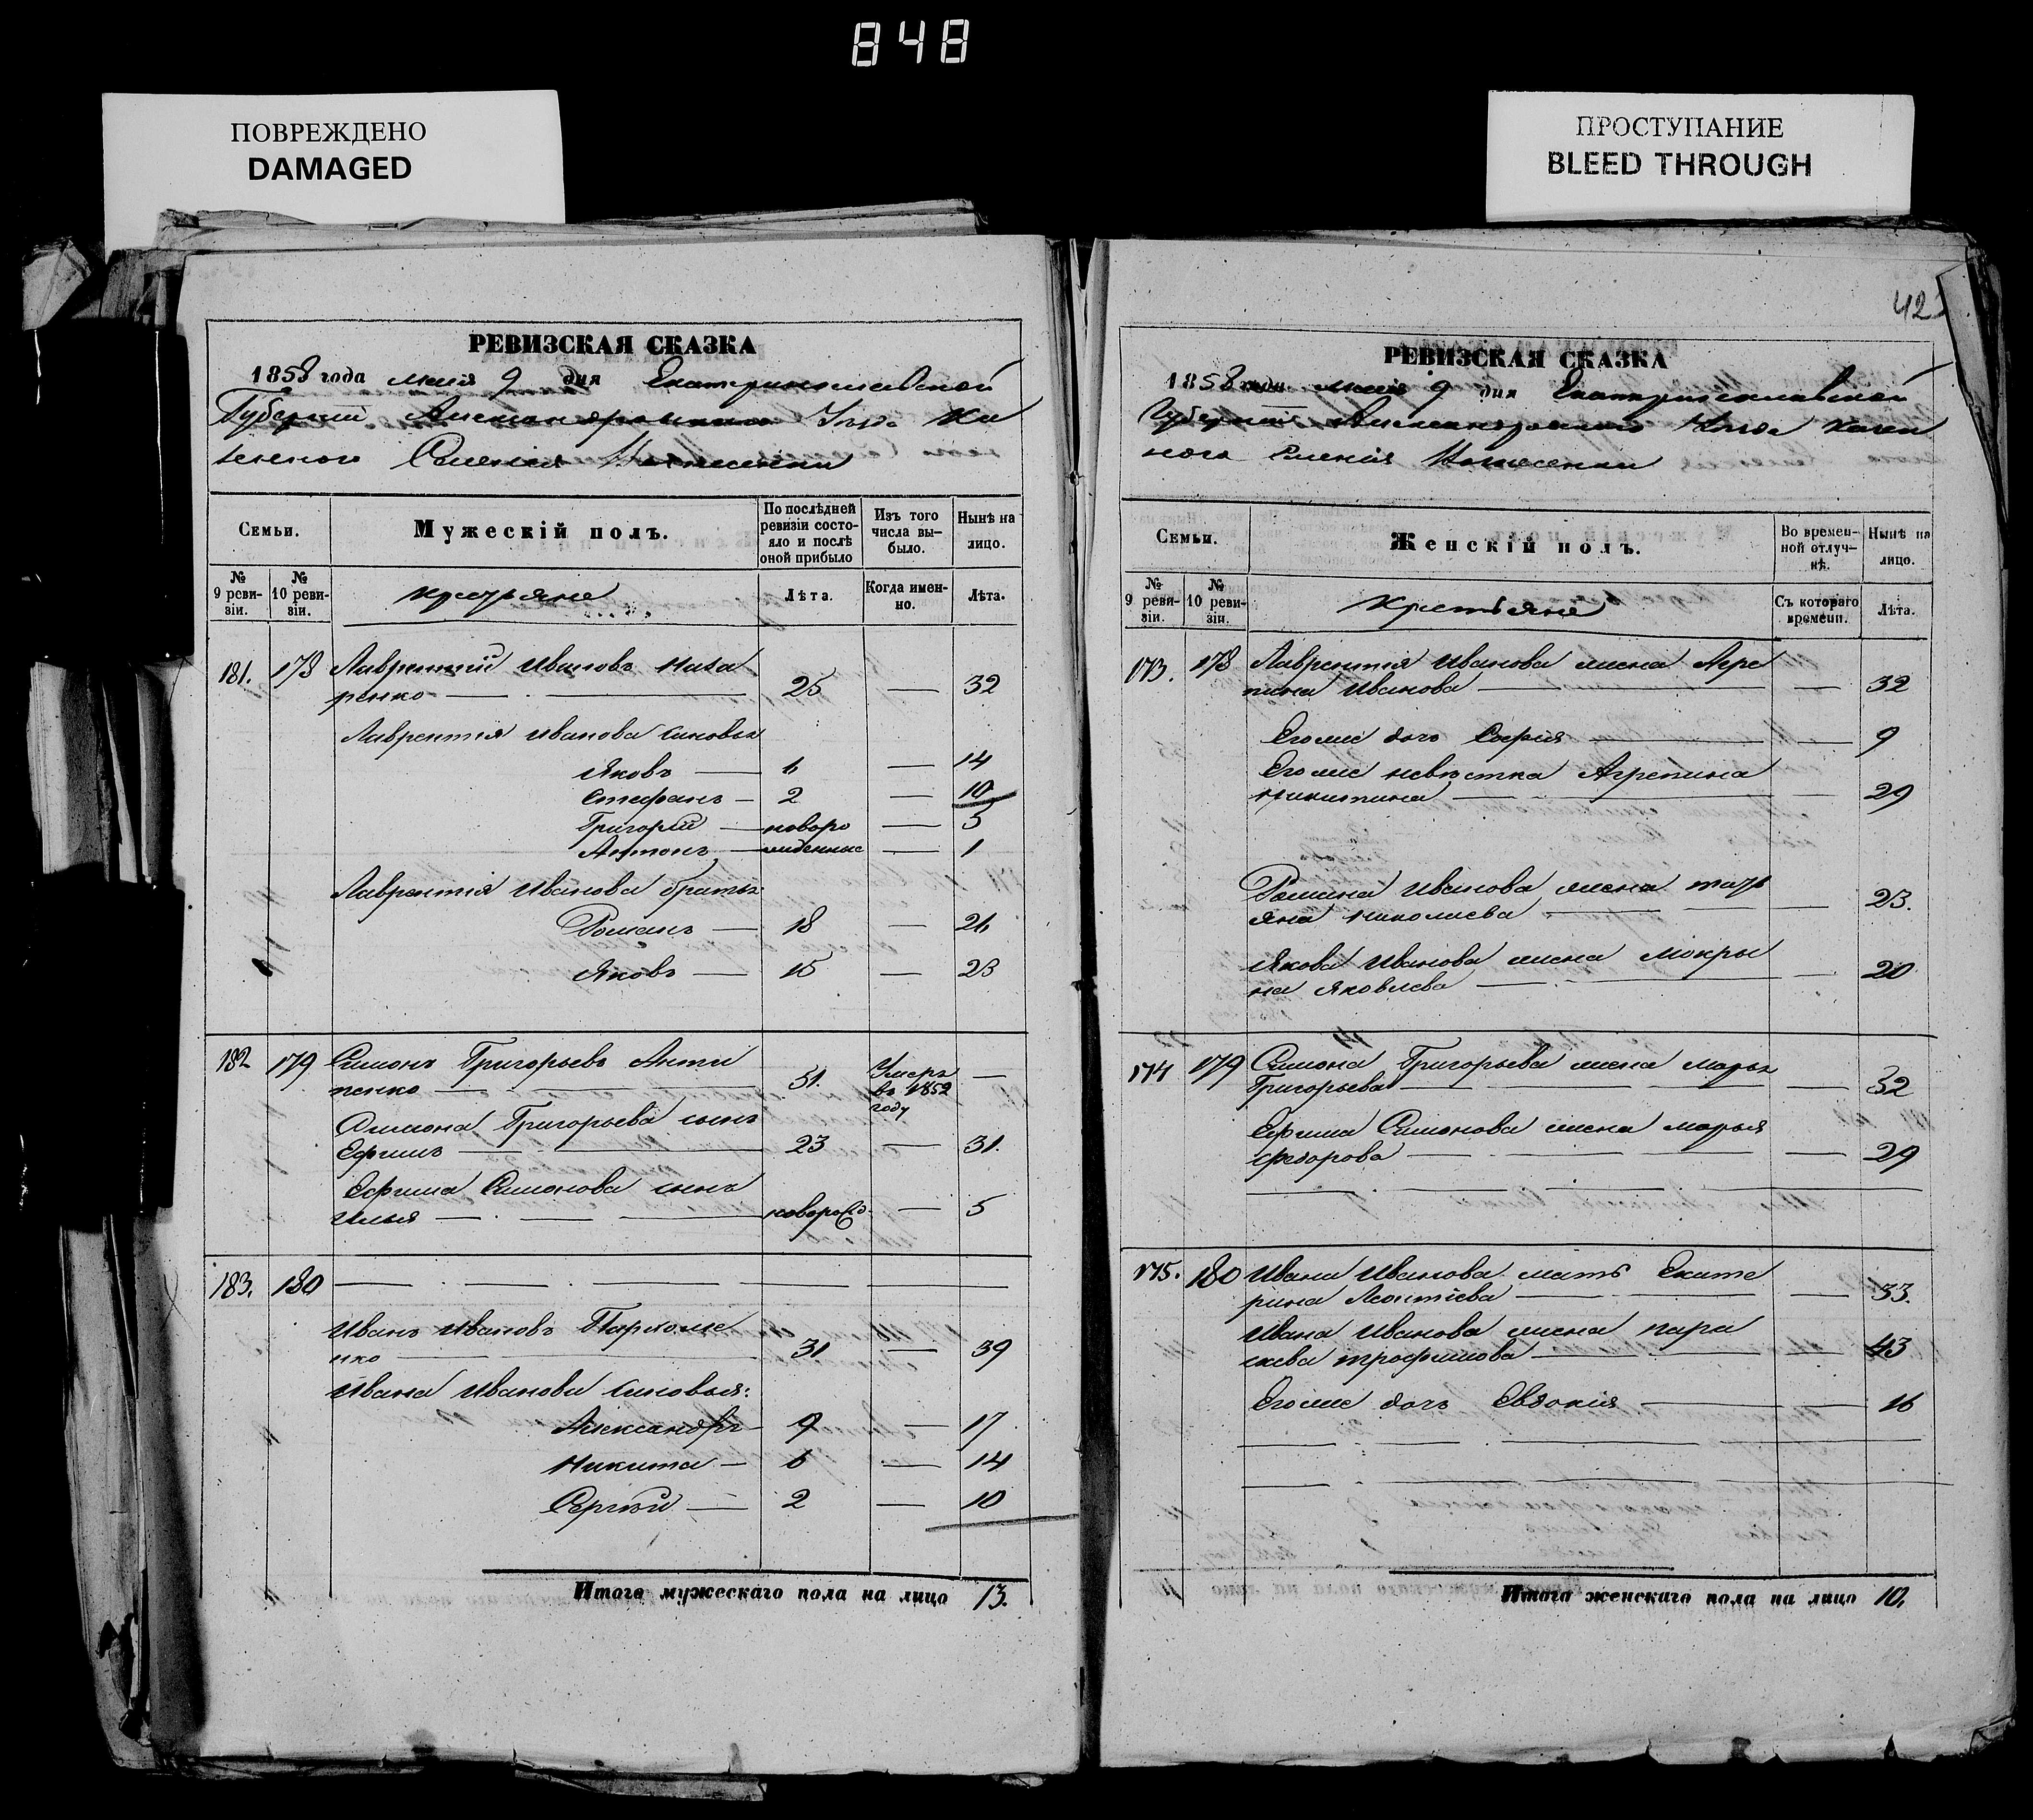 848
ПОВРЕЖДЕНО
DAMAGED
ПРОСТУПАНИЕ
BLEED THROUGH
РЕВИЗСКАЯ СКАЗКА
1858 года маія 9 дня Екатеринославской
Губерніи Александровскаго Уѣзда Ка
зеннаго Селенія Вознесенки
Семьи.
Мужескій полъ.
По послѣдней ревизіи состояло и послѣ оной прибыло
Изъ того числа выбыло.
Нынѣ на лицо.
№ 9 ревизіи.
№ 10 ревизіи.
крестьяне
Лѣта.
Когда именно.
Лѣта.
181. 178 Лаврентій Ивановъ Наза
ренко — 25 — 32
Лаврентія Иванова сыновья
Яковъ — — 14
Стефанъ — 2 — 10
Григорій — новоро — 5
Антонъ — жденные — 1
Лаврентія Иванова братья
Романъ — 18 — 26
Яковъ — 15 — 23
182 179 Симонъ Григорьевъ Анти
пенко — 51. Умеръ въ 1852 году —
Симона Григорьева сынъ
Ефимъ — 23 — 31.
Ефима Симонова сынъ
Илья — новорожд. — 5
183. 180
Иванъ Ивановъ Пархоме
нко — 31 — 39
Ивана Иванова сыновья:
Александръ 9 — 17
Никита — 6 — 14
Сергѣй — 2 — 10
Итого мужескаго пола на лицо 13.
42
РЕВИЗСКАЯ СКАЗКА
1858 года маія 9 дня Екатеринославской
Губерніи Александровскаго Уѣзда Казен
наго Селенія Вознесенки
Семьи.
Женскій полъ.
Во временной отлучкѣ.
Нынѣ на лицо.
№ 9 ревизіи.
№ 10 ревизіи.
Крестьяне
Съ котораго времени.
Лѣта.
173. 178 Лаврентія Иванова жена Агре
пина Иванова — — 32
Его же дочь Софія — — 9
Его же невѣстка Агрепина
Никитина — — 29
Романа Иванова жена тать
яна Николаева — — 23.
Якова Иванова жена Мокры
на Яковлева — — 20
174 179 Симона Григорьева жена Марья
Григорьева — — 52
Ефима Симонова жена Марья
федорова — — 29
175. 180 Ивана Иванова мать Екате
рина Леонтіева — — 53.
Ивана Иванова жена пара
скева трофимова — — 43
Его же дочь Евдокія — — 16
Итого женскаго пола на лицо 10.